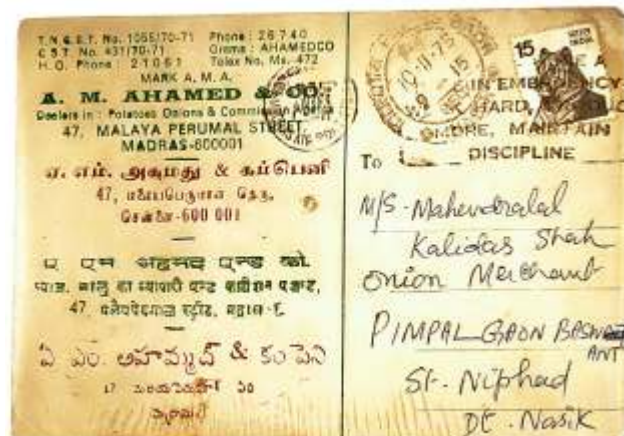 T.N.G.S.T. No. 1055/70-71 Phone: 26740
C S T. No. 431/70-71 Grams: AHAMEDCO
H.O. Phone: 21061 Telex No. Ms. 472
MARK A. M. A.
A. M. AHAMED & CO.
Dealers in : Potatoes Onions & Commission
47, MALAYA PERUMAL STREET,
MADRAS-600001
ஏ. எம். அகமது & கம்பெனி
47, மலையபெருமாள் தெரு,
சென்னை-600 001
ए एम अहमद एन्ड को.
प्याज, आलु का व्यापारी एन्ड
47, स्ट्रीट, मद्रास-१
ఏ ఎం. అహమ్మద్ & కంపెని
15 INDIA
IN EMERGENCY
HARD,
MORE, MAINTAIN
DISCIPLINE
To
M/S - Mahendralal
Kalidas Shah
Onion Merchant
PIMPALGAON BASWANT
St. Niphad
Dt. Nasik